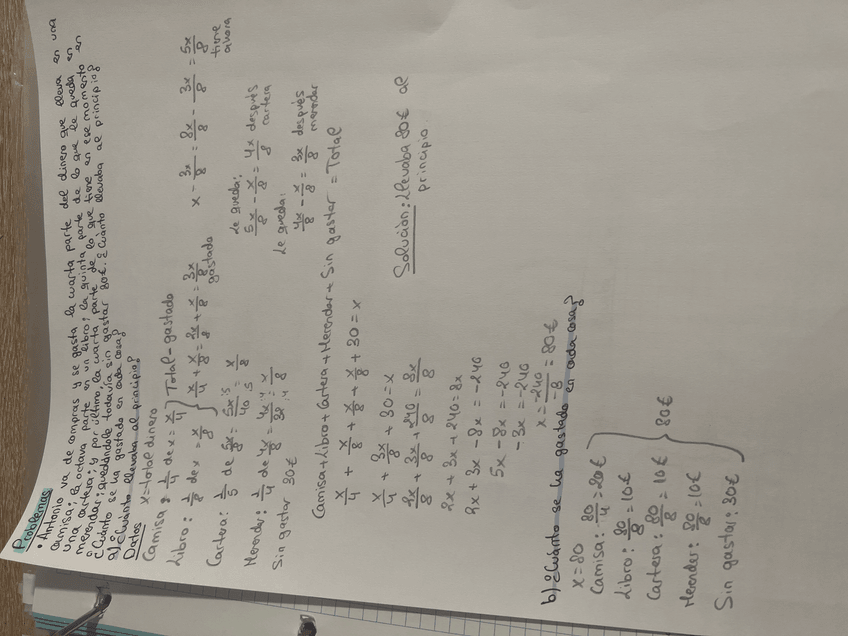 Problemas
• Antonio va de compras y se gasta la cuarta parte del dinero que lleva en una
camisa; la octava parte en un libro; la quinta parte de lo que le queda en
una cartera; y por último, la cuarta parte de lo que tiene en ese momento en
merendar; quedándole todavía sin gastar 30€. ¿Cuánto llevaba al principio?
¿Cuánto se ha gastado en cada cosa?
a) ¿Cuánto llevaba al principio?
Datos x=total dinero
Camisa: 1/4 de x = x/4 } Total-gastado
Libro: 1/8 de x = x/8 } x/4 + x/8 = 2x/8 + x/8 = 3x/8 gastado x - 3x/8 = 8x/8 - 3x/8 = 5x/8 tiene ahora
Cartera: 1/5 de 5x/8 = 5x:5/40:5 = x/8 Le queda: 5x/8 - x/8 = 4x/8 después cartera
Merendar: 1/4 de 4x/8 = 4x:4/32:4 = x/8 Le queda: 4x/8 - x/8 = 3x/8 después merendar
Sin gastar 30€
Camisa + Libro + Cartera + Merendar + Sin gastar = Total
x/4 + x/8 + x/8 + x/8 + 30 = x
x/4 + 3x/8 + 30 = x
2x/8 + 3x/8 + 240/8 = 8x/8
2x + 3x + 240 = 8x
2x + 3x - 8x = -240
5x - 8x = -240
-3x = -240
x = -240/-8 = 80€
Solución: Llevaba 80€ al
principio.
b) ¿Cuánto se ha gastado en cada cosa?
x = 80
Camisa: 80/4 = 20€
Libro: 80/8 = 10€
Cartera: 80/8 = 10€ } 80€
Merender: 80/8 = 10€
Sin gastar: 30€